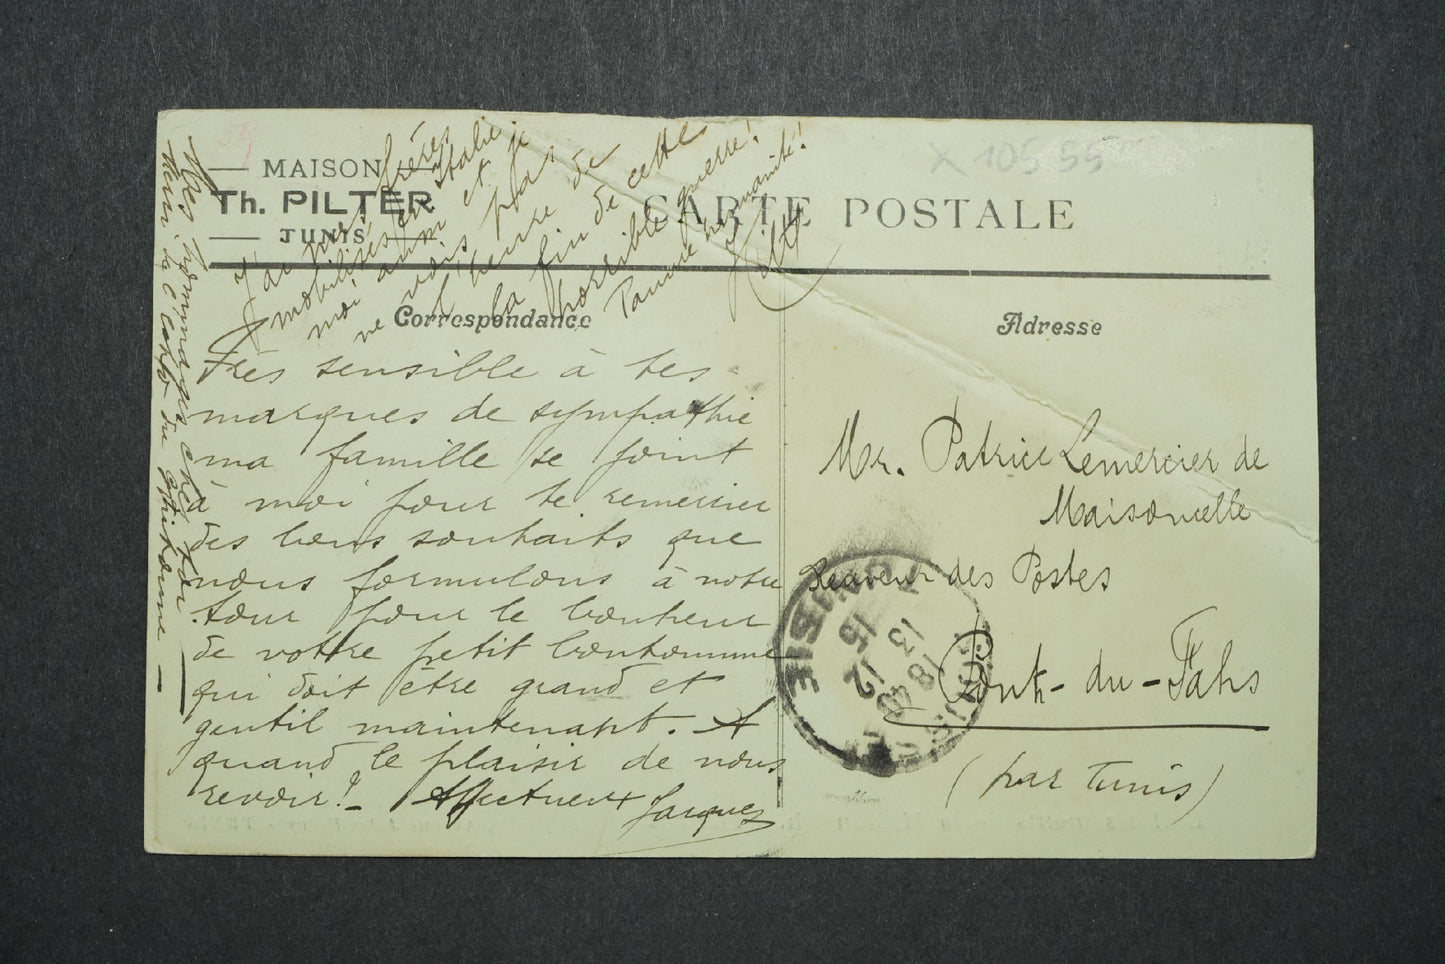 MAISON
Th. PILTER
TUNIS
CARTE POSTALE
Correspondance
Adresse
Très sensible à tes
marques de sympathie
ma famille se joint
à moi pour te remercier
des bons souhaits que
nous formulons à notre
tour pour le bonheur
de votre petit bonhomme
qui doit être grand et
gentil maintenant. A
quand le plaisir de nous
revoir! - Affectueux Jacques
J'ai frères
mobilisés en Italie
moi aussi et je
ne vois pas
l'heure de
la fin de cette
horrible guerre!
Pauvre humanité!
Mes hommages chez toi
Mr. Patrice Lemercier de
Maisoncelle
Receveur des Postes
Pont-du-Fahs
(par Tunis)
TUNIS
TUNISIE
13 18 40
15 12
x 105 55